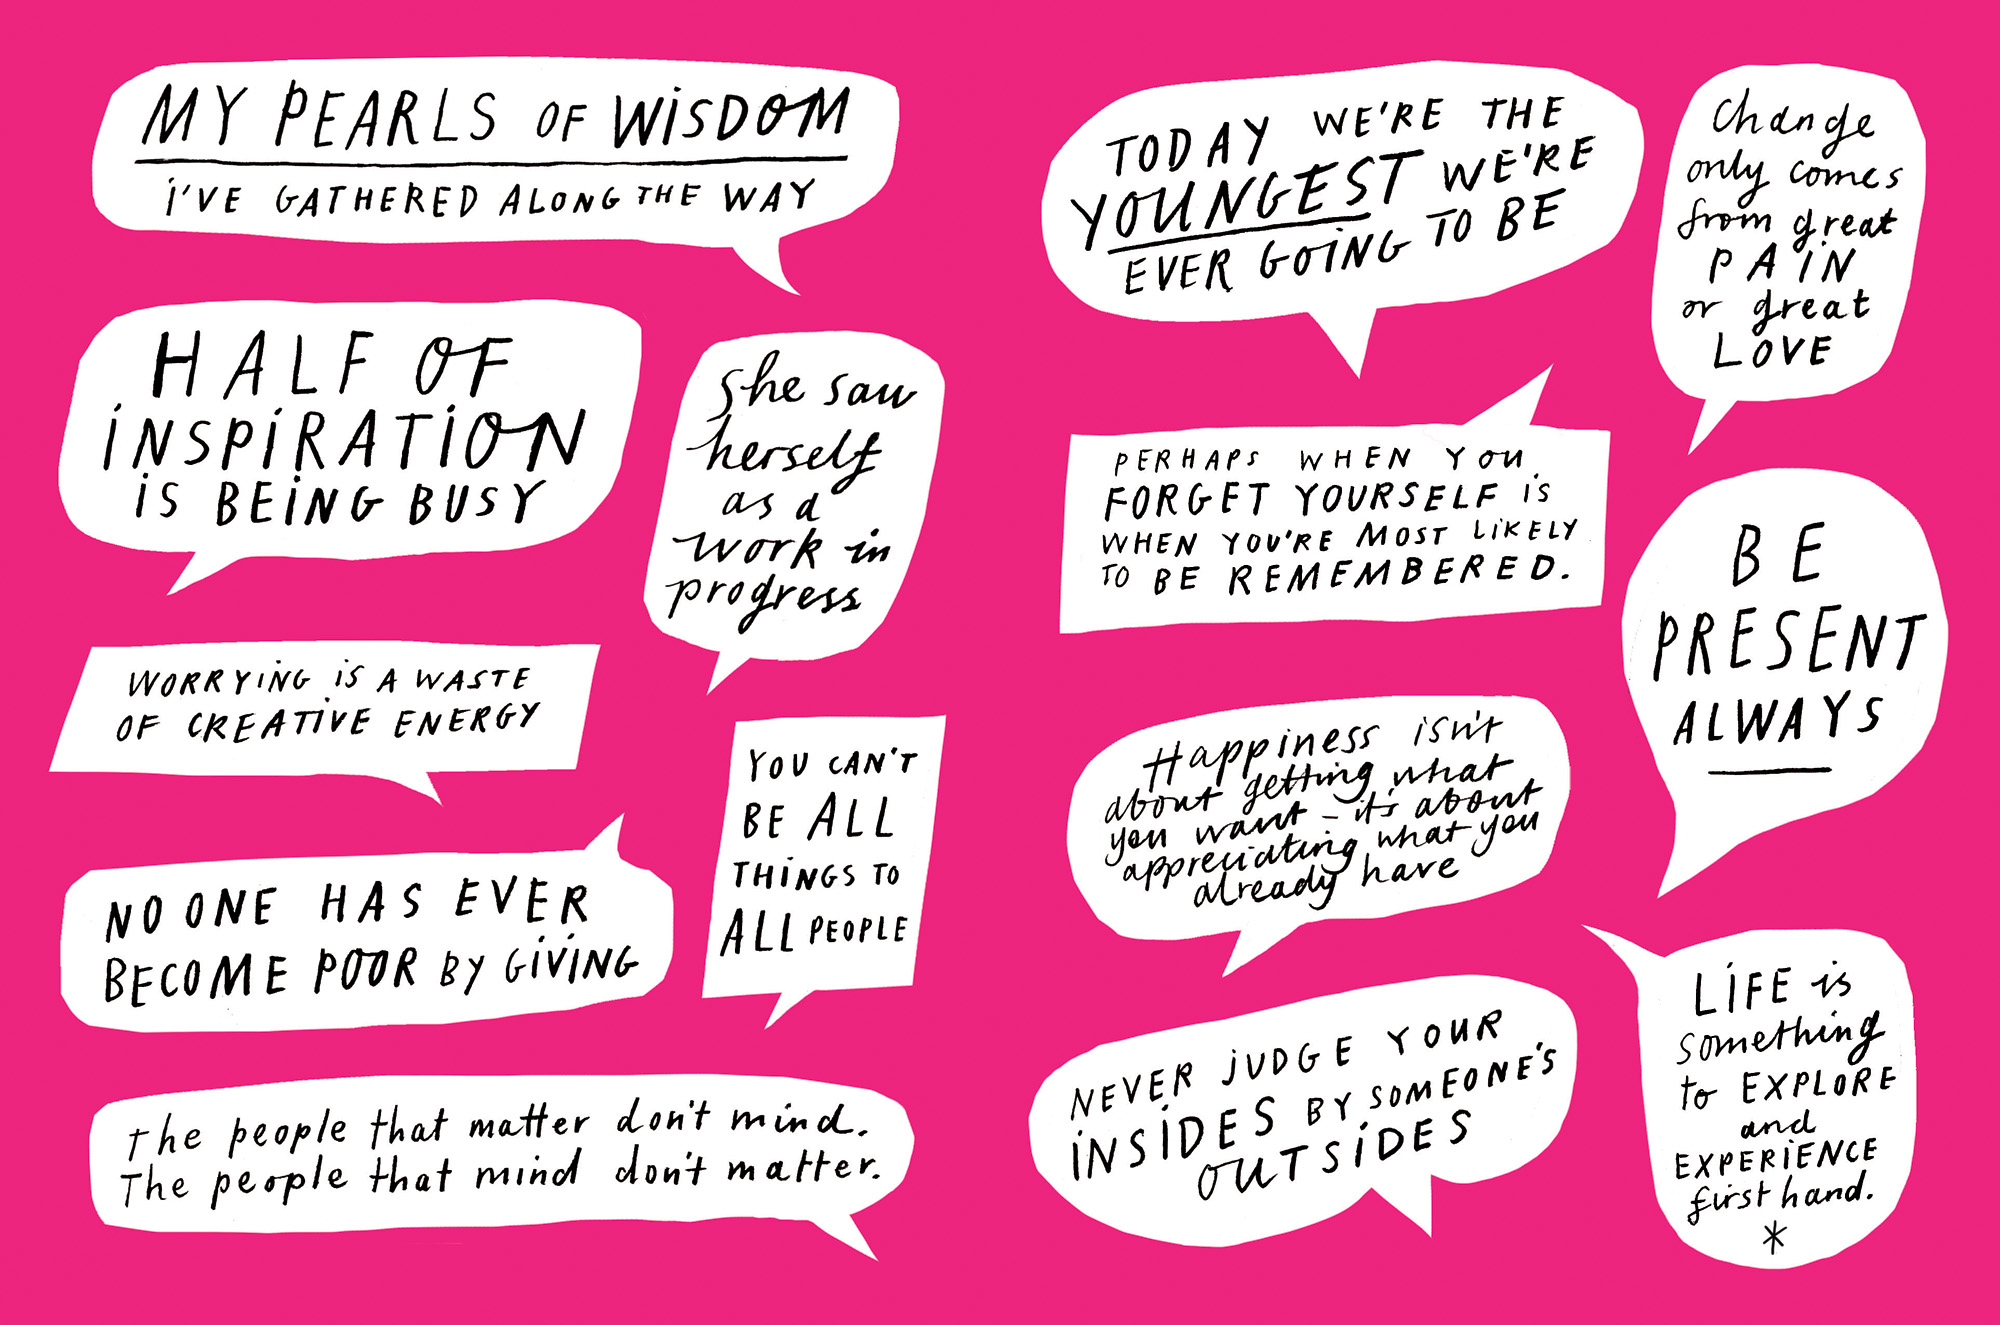 MY PEARLS OF WISDOM
I'VE GATHERED ALONG THE WAY
HALF OF
INSPIRATION
IS BEING BUSY
She saw
herself
as a
work in
progress
WORRYING IS A WASTE
OF CREATIVE ENERGY
YOU CAN'T
BE ALL
THINGS TO
ALL PEOPLE
NO ONE HAS EVER
BECOME POOR BY GIVING
The people that matter don't mind.
The people that mind don't matter.
TODAY WE'RE THE
YOUNGEST WE'RE
EVER GOING TO BE
Change
only comes
from great
PAIN
or great
LOVE
PERHAPS WHEN YOU
FORGET YOURSELF IS
WHEN YOU'RE MOST LIKELY
TO BE REMEMBERED.
BE
PRESENT
ALWAYS
Happiness isn't
about getting what
you want - it's about
appreciating what you
already have
NEVER JUDGE YOUR
INSIDES BY SOMEONE'S
OUTSIDES
LIFE is
something
to EXPLORE
and
EXPERIENCE
first hand.
*